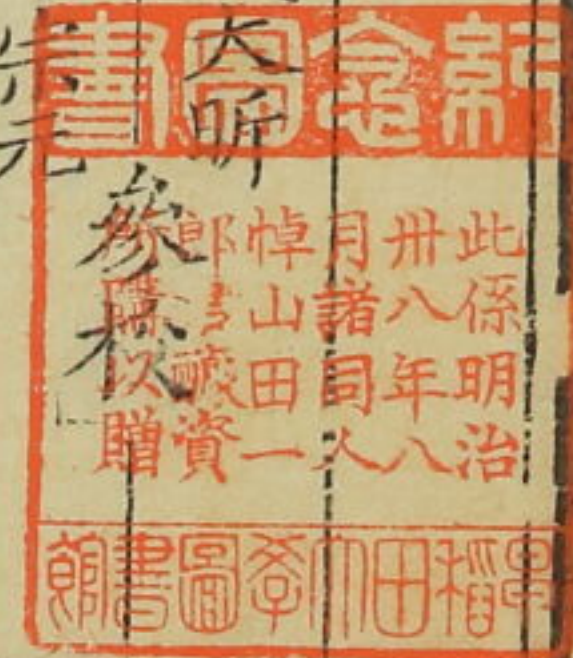 紀念圖書
此係明治
卅八年八
月諸同人
悼山田一
郎醵資
購以贈
早稲田大學圖書館
大昕
參校
元